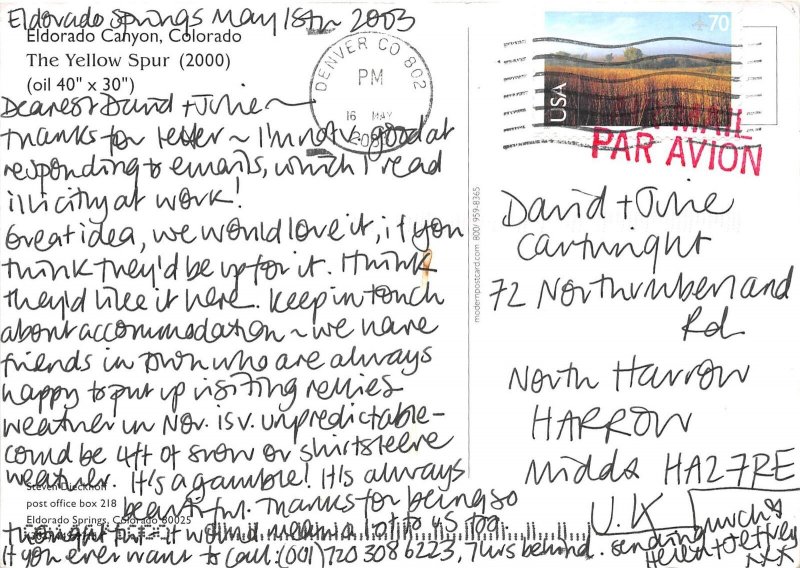 Eldorado Springs May 15th 2003
Eldorado Canyon, Colorado
The Yellow Spur (2000)
(oil 40" x 30")
Dearest David + Julie ~
Thanks for letter ~ I'm not v. good at
responding to emails, which I read
illicitly at work!
Great idea, we would love it, if you
think they'd be up for it. I think
they'd like it here. Keep in touch
about accommodation ~ we have
friends in town who are always
happy to put up visiting rellies
weather in Nov. is v. unpredictable -
could be 4ft of snow or shirtsleeve
weather. It's a gamble! It's always
beautiful. Thanks for being so
thoughtful it would mean a lot to us too.
If you ever want to call: (001) 720 308 6223, 7hrs behind. sending much
Helen + Jeffrey
xxx
Steven Dieckhoff
post office box 218
Eldorado Springs, Colorado 80025
modernpostcard.com 800/959-8365
DENVER CO 802
PM
16 MAY
USA
70
PAR AVION
David + Julie
Cartwright
72 Northumberland
Rd
North Harrow
HARROW
Middx HA2 7RE
U.K